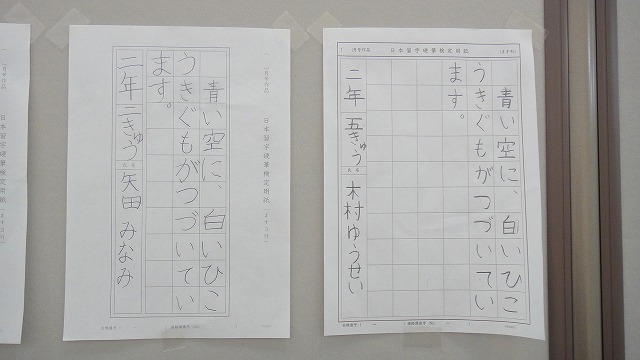 一月号作品
日本習字硬筆検定用紙
(ます3行)
青い空に、白いひこ
うきぐもがつづいてい
ます。
二年 三きゅう 氏名 矢田 みなみ
1月号作品
日本習字硬筆検定用紙
青い空に、白いひこ
うきぐもがつづいてい
ます。
二年 五きゅう 氏名 木村ゆうせい